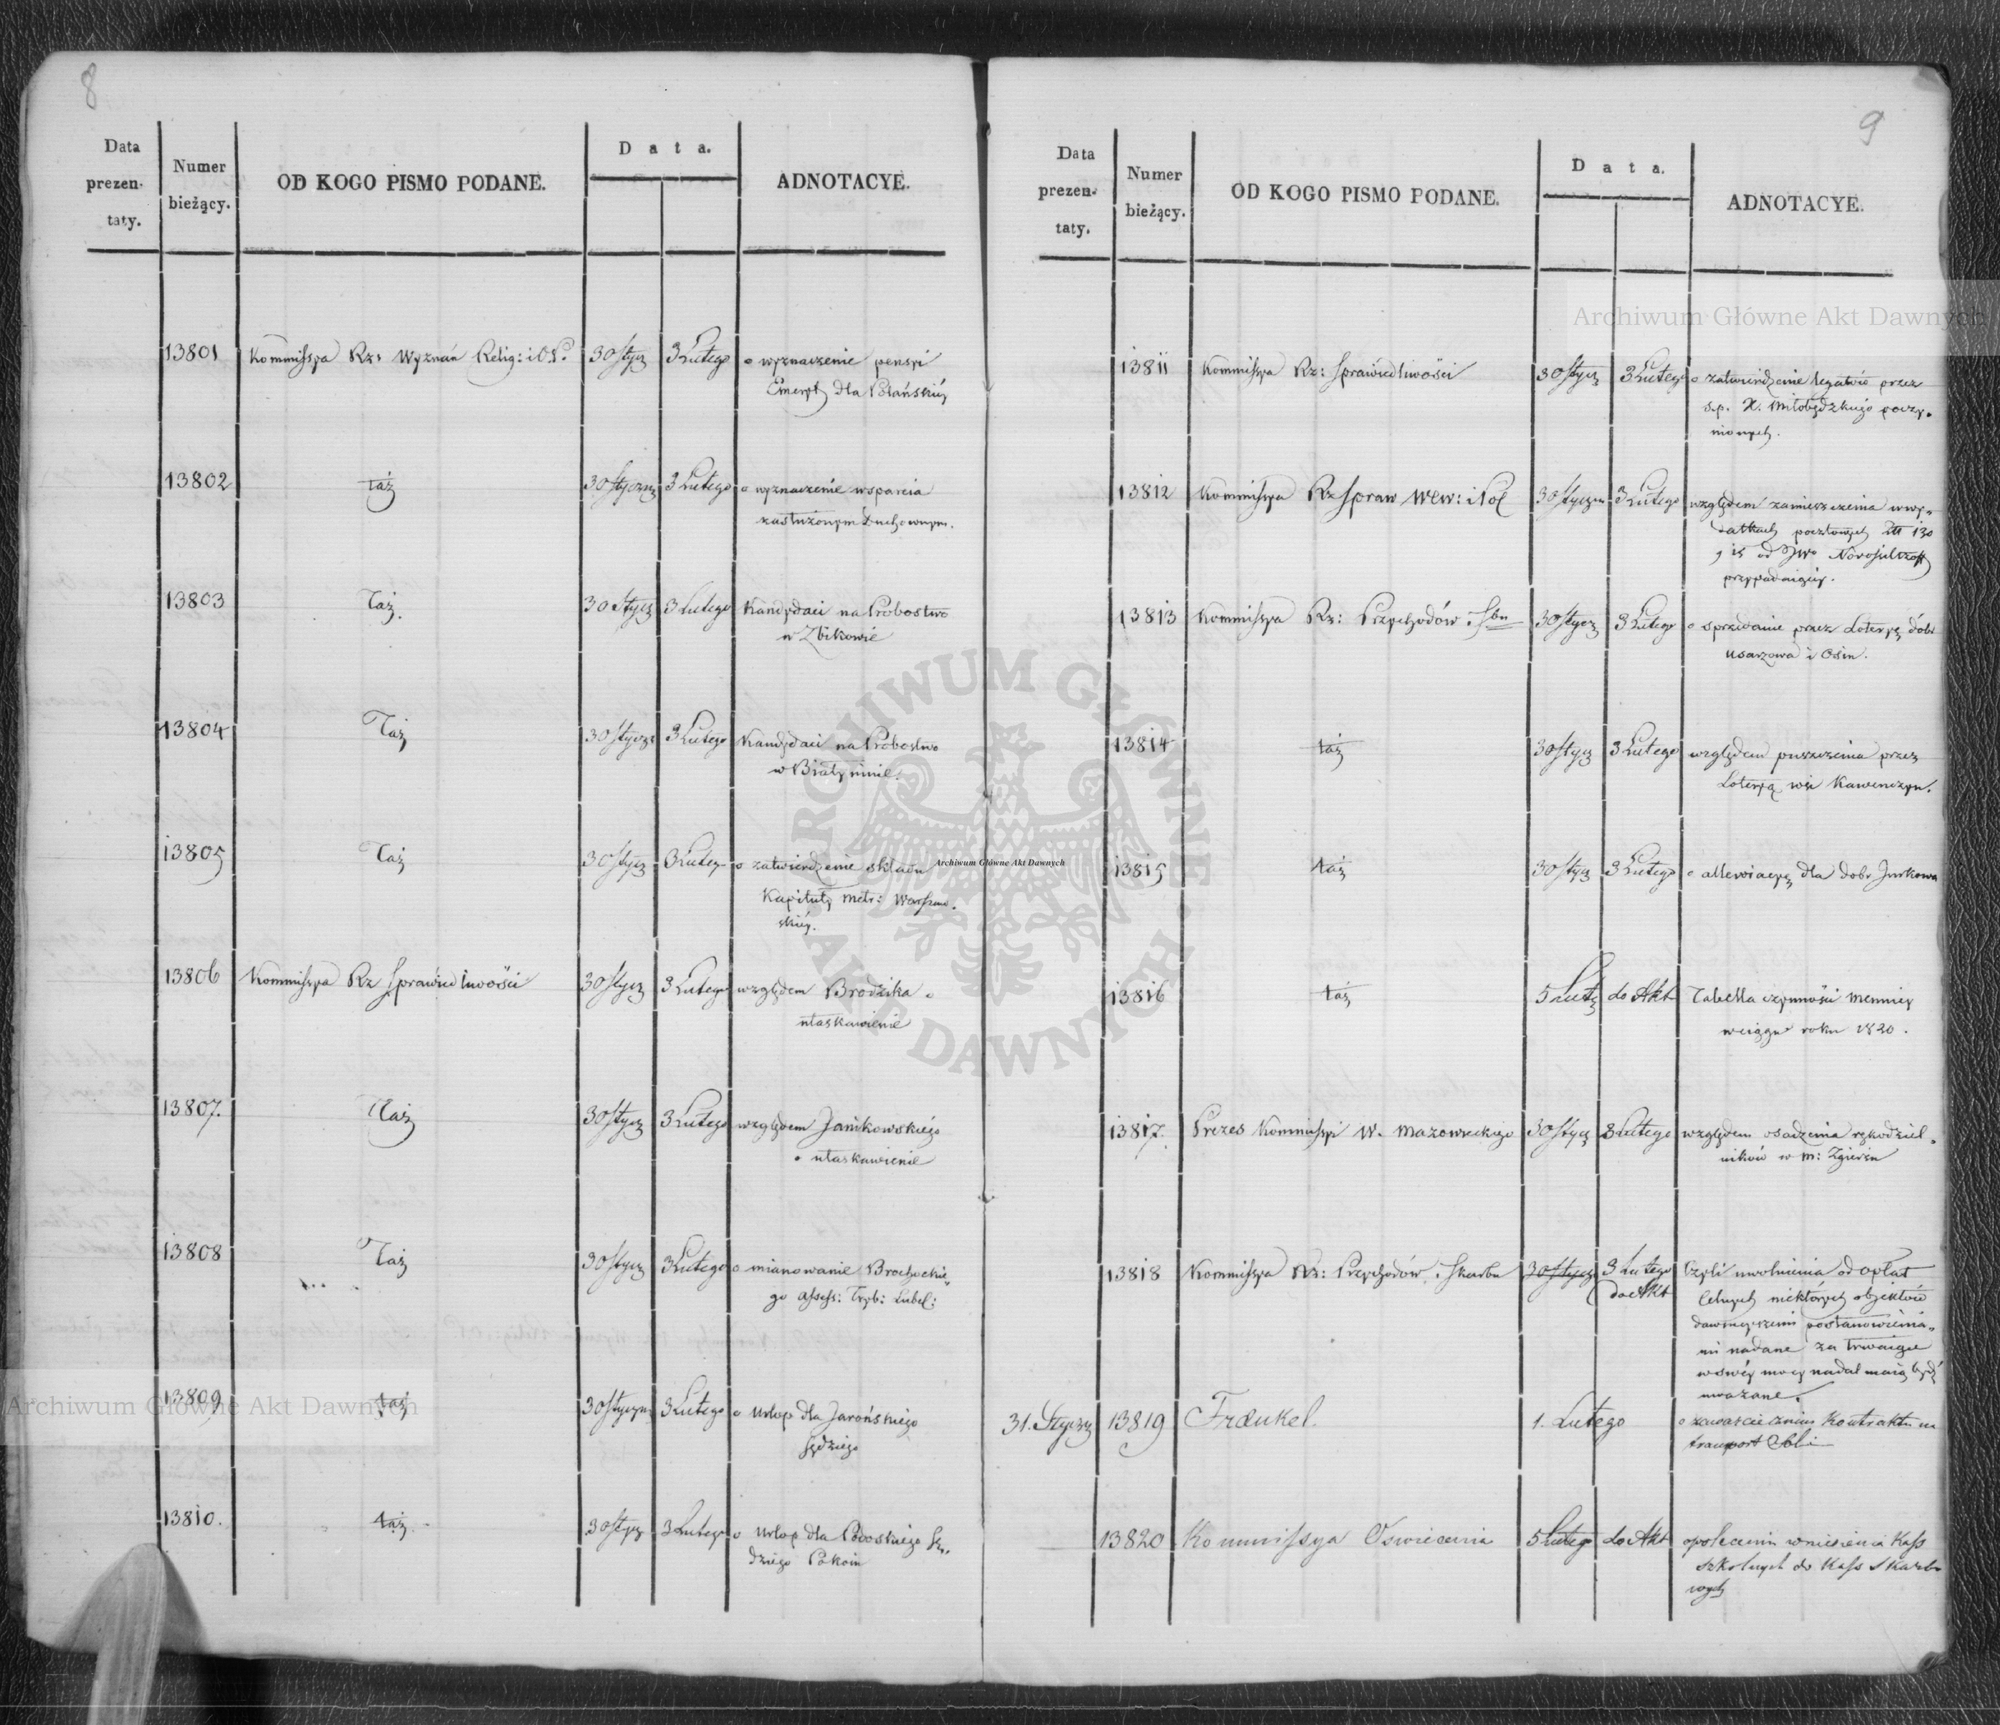 8
Data
prezen-
taty.
Numer
bieżący.
OD KOGO PISMO PODANE.
Data.
ADNOTACYE.
13801 Kommissya Rz: Wyznań Relig: i O.P. 30 Stycz 3 Lutego o wyznaczenie pensyi
Emeryt dla
13802 taż 30 Styczn 3 Lutego o wyznaczenie wsparcia
zasłużonym Duchownym.
13803 Taż. 30 Stycz 3 Lutego Kandydaci na Probostwo
w Zbikowie
13804 Taż 30 Stycz 3 Lutego Kandydaci na Probostwo
w Białyninie.
13805 Taż 30 Stycz 3 Luteg o zatwierdzenie składu
Kapituły metr: Warszaw-
skiéy.
13806 Kommissya Rz Sprawiedliwości 30 Stycz 3 Lutego względem Brodzika o
ułaskawienie
13807. Taż 30 Stycz 3 Lutego względem Janikowskiégo
o ułaskawienie
13808 Taż 30 Stycz 3 Lutego o mianowanie Brochockié-
go Assess: Tryb: Lubel:
13809 taż 30 Styczn 3 Lutego o Urlop dla Jarońskiego
Sędziego
13810. taż 30 Stycz 3 Lutego o Urlop dla Sę-
dziego Pokoiu
9
Data
prezen-
taty.
Numer
bieżący.
OD KOGO PISMO PODANE.
Data.
ADNOTACYE.
13811 Kommissya Rz: Sprawiedliwości 30 Stycz 3 Lutego o zatwierdzenie legatów przez
s.p. X. Miłobędzkiégo poczy-
nionych.
13812 Kommissya Rz Spraw Wew: i Pol 30 Styczn 3 Lutego względem zamieszczenia w wy-
datkach pocztowych Zł 130
g 15 od JW° Nowosilcoff
przypadaiącéy.
13813 Kommissya Rz: Przychodów i Sbu 30 Stycz 3 Lutego o sprzedanie przez Loteryę dóbr
Usarzowa i Osin.
13814 taż 30 Stycz 3 Lutego względem puszczenia przez
Loteryą wsi Kawenczyn.
13815 taż 30 Stycz 3 Lutego o allewiacyą dla dobr Jurkowa
13816 taż 5 Lutg do Akt Tabella czynności Mennicy
w ciągu roku 1820.
13817. Prezes Kommissyi W. Mazowieckiego 30 Stycz 3 Lutego względem osadzenia rękodziel-
ników w m: Zgierzu
13818 Kommissya Rz: Przychodów i Skarbu 30 Stycz 3 Lutego Czyli uwolnienia od opłat
do Akt Celnych niektórych objektów
dawnieyszemi postanowienia-
mi nadane za trwaiące
w swéy mocy nadal maią bydź
uważane.
31. Styczn 13819 Fraenkel. 1. Lutego o zawarcie Kontraktu na
transport Soli
13820 Kommissya Oswiecenia 5 Lutego do Akt o poleceniu wniesienia Kass
szkolnych do Kass Skarbo-
wych
Archiwum Główne Akt Dawnych
Archiwum Główne Akt Dawnych
Archiwum Główne Akt Dawnych
ARCHIWUM GŁÓWNE
AKT DAWNYCH